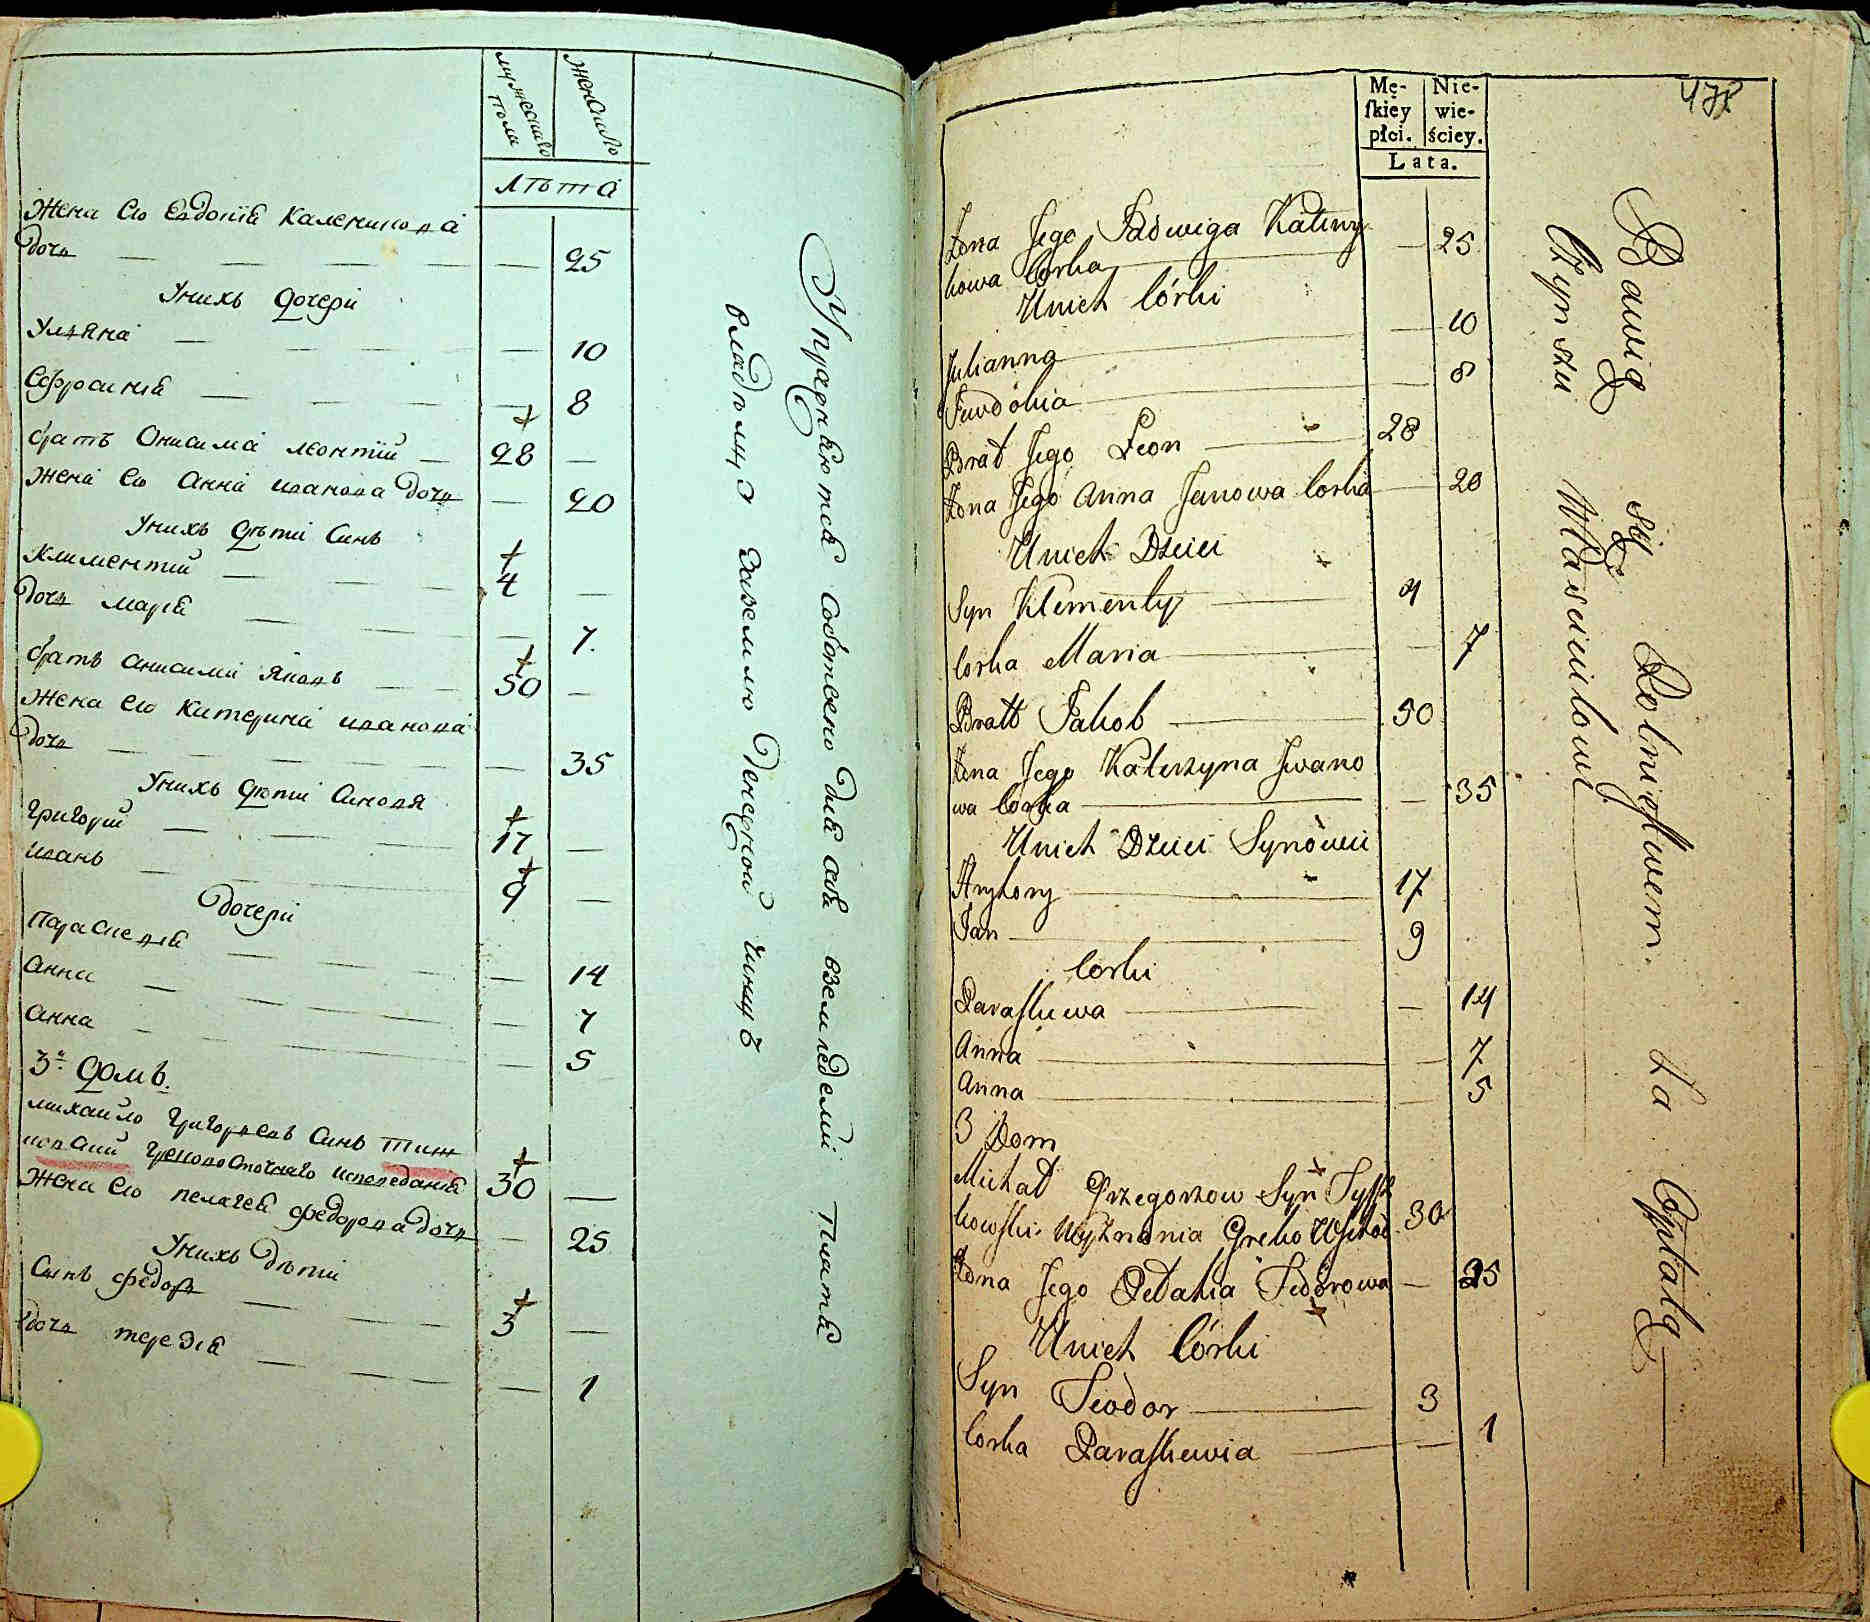 мужескаго пола
женскаго
лѣта
Жена его Евдокіа Каленикова
дочь — 25
Унихъ дочери
Ульяна — 10
Ефросиніа — 8
братъ Онисима леонтіи — 28 —
жена его Анна иванова дочь — 20
Унихъ дѣти Синъ
Климентіи — 4 —
дочь маріа — 7.
братъ анисима Яковъ — 50 —
жена его катерина иванова
дочь — 35
Унихъ дѣти Синовя
Григории — 17 —
иванъ — 9 —
дочери
Параскевіа — 14
анна — 7
анна — 5
3й домъ.
михаило Григорьевъ Синъ тиш
ковский грековосточнаго исповеданіа 30 —
Жена его пелагея федорова дочь — 25
Унихъ дѣти
Синъ федоръ — 3 —
дочь — 1
Упражняютса собствено для себя земледелиі Платя
владѣлцу заземлю денежной чиншъ
478
Mę-
skiey
płci.
Nie-
wie-
ściey.
Lata.
Żona Jego Jadwiga Kaliny — 25
kowa Corka
Unich Córki
Julianna — 10
Jewdokia — 8
Brat Jego Leon — 28
Żona Jego Anna Janowa Corka — 20
Unich Dzieci
Syn Klementy — 4
Corka Maria — 7
Bratt Jakob — 50
Żona Jego Katerzyna Jwano
wa Corka — 35
Unich Dzieci Synowie
Hryhory — 17
Jan — 9
Corki
Paraskiewa — 14
Anna — 7
Anna — 5
3 Dom
Michał Grzegorzow Syn Tyſz
kowſki Wyznania Greko Wſchod. 30
Żona Jego Pełahia Fedorowa — 25
Unich Córki
Syn Fiodor — 3
Corka Paraskewia — 1
Bawią się Rolnictwem. Za Opłatą
Czynszu Właścicielowi